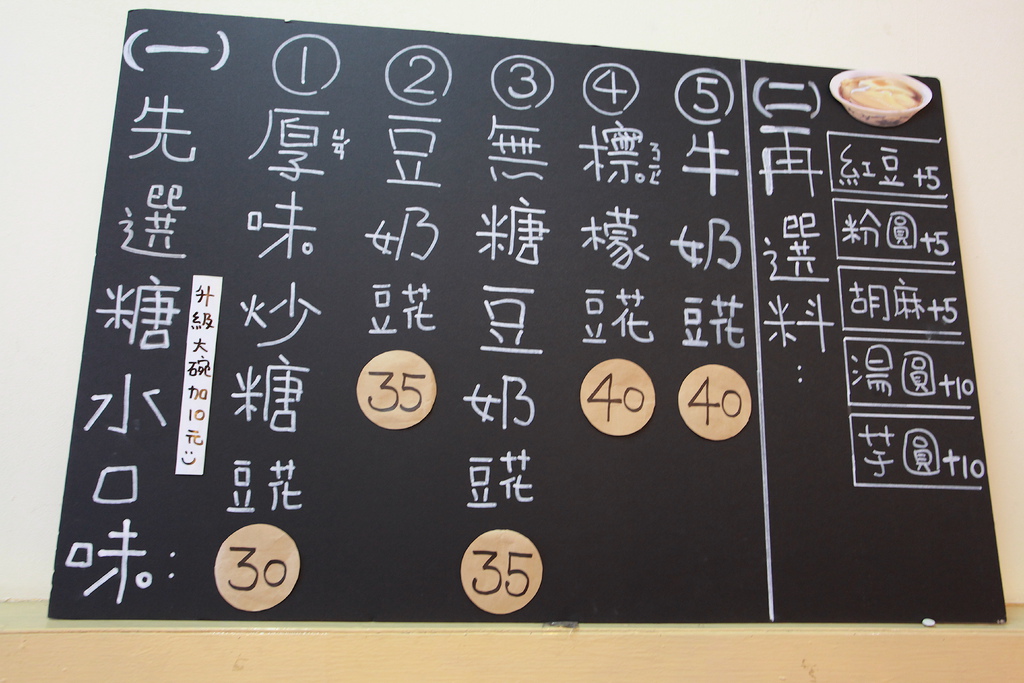 (一)先選糖水口味:
升級大碗加10元
①厚ㄏㄡˋ味炒糖豆花
30
②豆奶豆花
35
③無糖豆奶豆花
35
④檸檬豆花
40
⑤牛奶豆花
40
(二)再選料:
紅豆+5
粉圓+5
胡麻+5
湯圓+10
芋圓+10